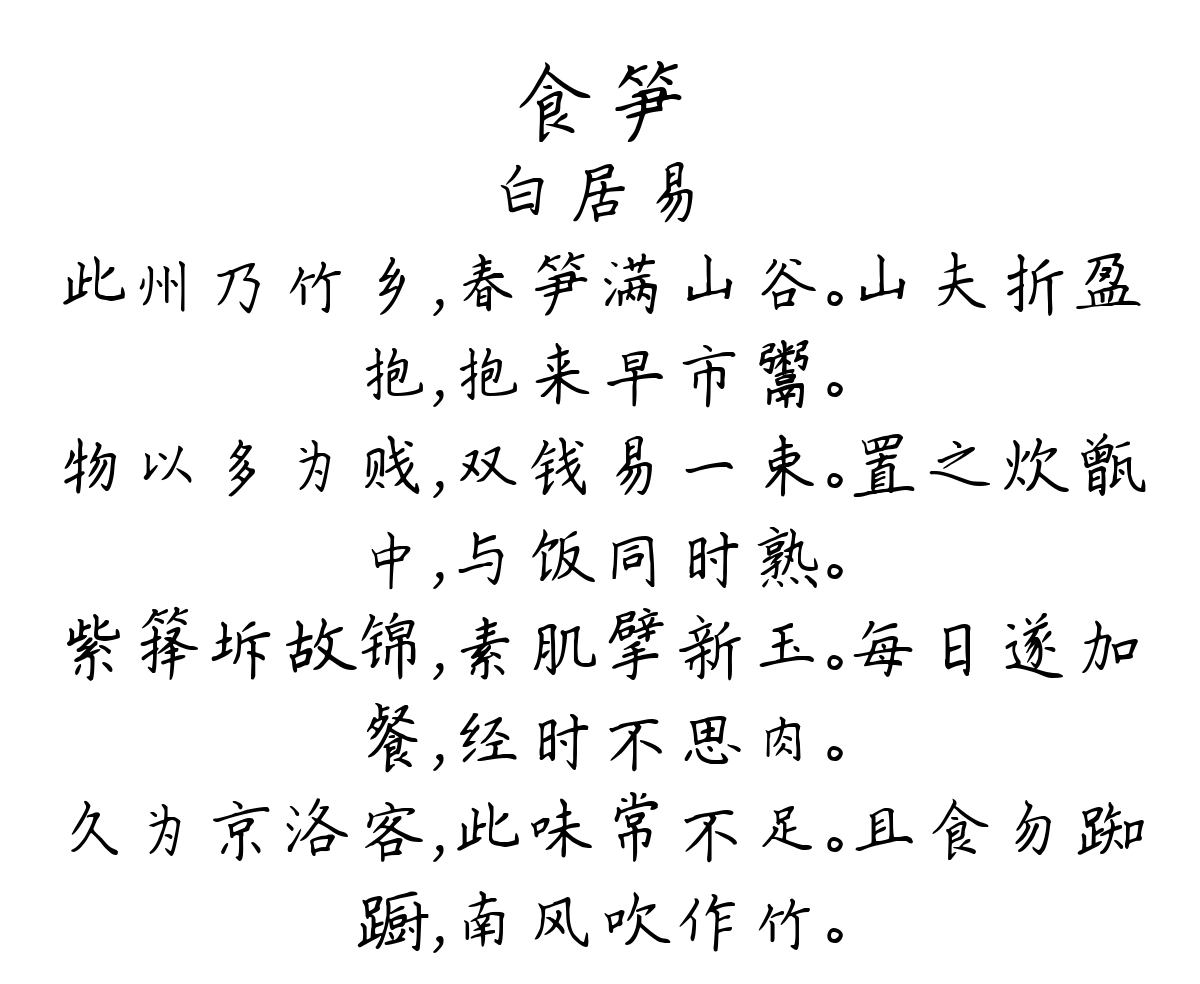 食笋
白居易
此州乃竹乡,春笋满山谷。山夫折盈
抱,抱来早市鬻。
物以多为贱,双钱易一束。置之炊甑
中,与饭同时熟。
紫箨坼故锦,素肌擘新玉。每日遂加
餐,经时不思肉。
久为京洛客,此味常不足。且食勿踟
蹰,南风吹作竹。